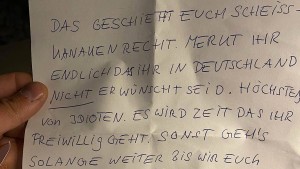 DAS GESCHIEHT EUCH SCHEISS-
KANAKEN RECHT. MERKT IHR
ENDLICH DAS IHR IN DEUTSCHLAND
NICHT ERWÜNSCHT SEID. HÖCHSTENS
VON IDIOTEN. ES WIRD ZEIT DAS IHR
FREIWILLIG GEHT. SONST GEHTS
SOLANGE WEITER BIS WIR EUCH